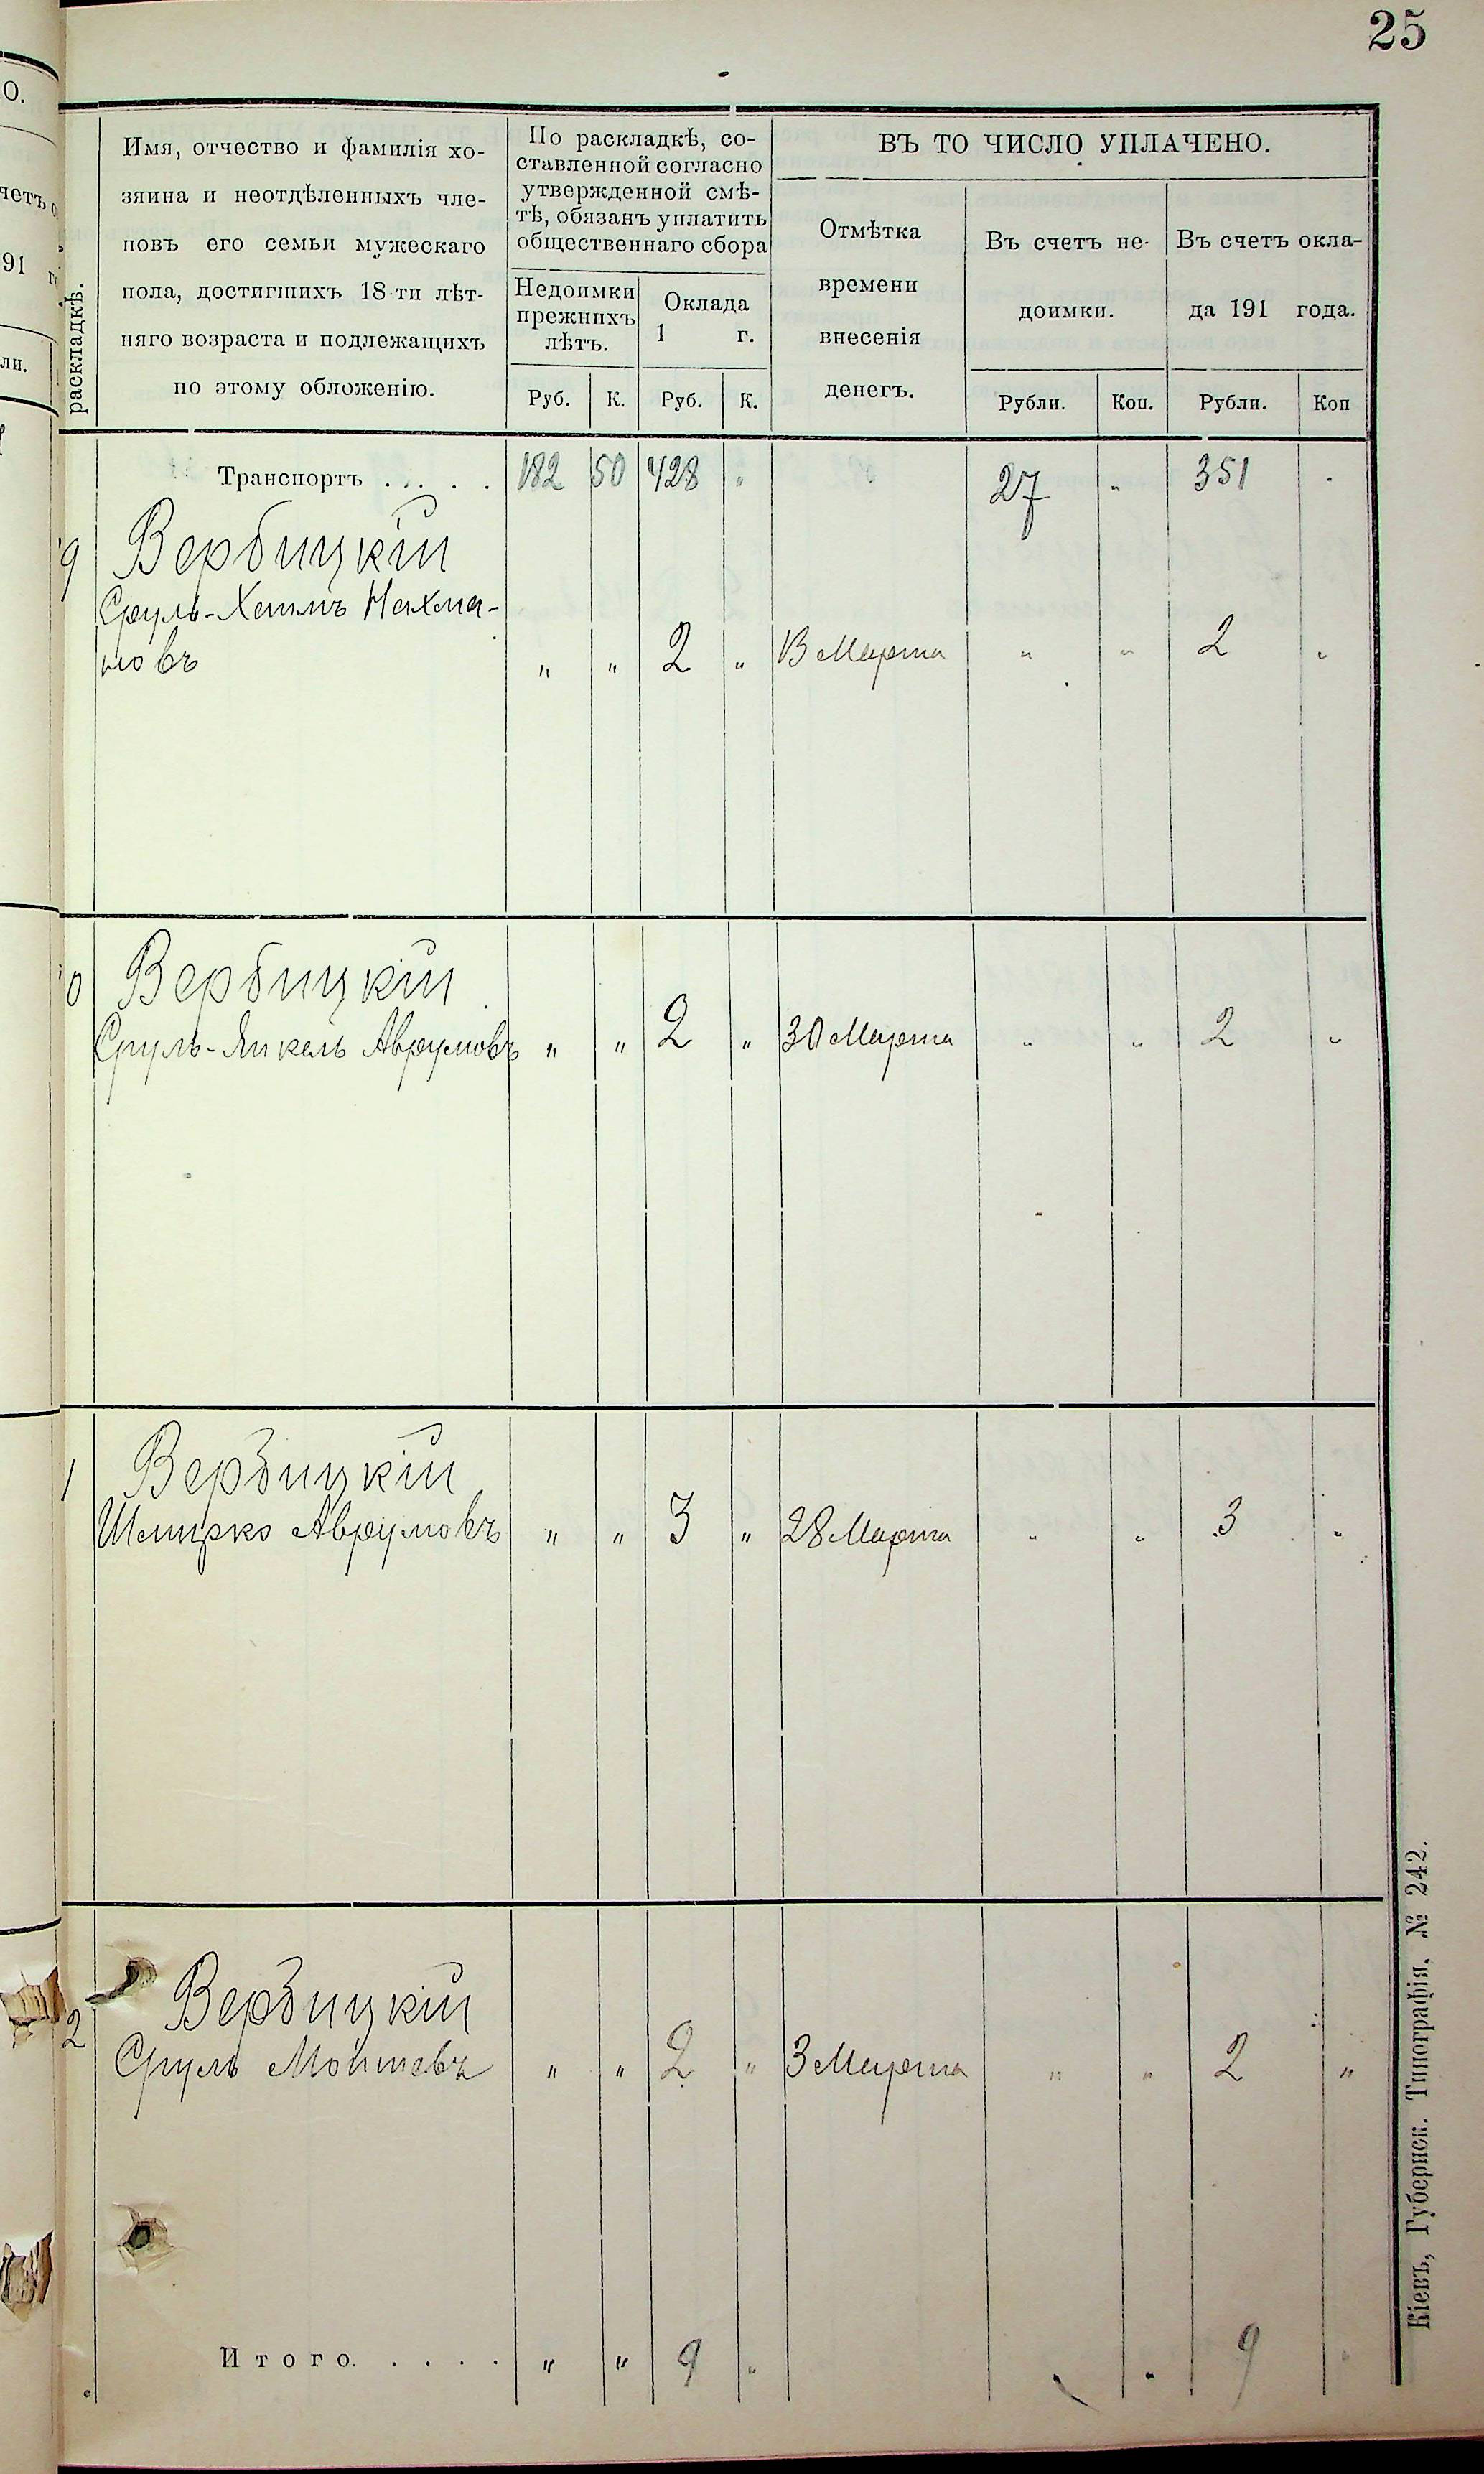 25
О.
четъ
91
ли.
раскладкѣ.
Имя, отчество и фамилія хо-
зяина и неотдѣленныхъ чле-
повъ его семьи мужескаго
пола, достигшихъ 18-ти лѣт-
няго возраста и подлежащихъ
по этому обложенію.
По раскладкѣ, со-
ставленной согласно
утвержденной смѣ-
тѣ, обязанъ уплатить
общественнаго сбора
Недоимки
прежнихъ
лѣтъ.
Оклада
1 г.
Руб. К. Руб. К.
ВЪ ТО ЧИСЛО УПЛАЧЕНО.
Отмѣтка
времени
внесенія
денегъ.
Въ счетъ не-
доимки.
Въ счетъ окла-
да 191 года.
Рубли. Коп. Рубли. Коп
Транспортъ . . . . . 182 50 428 " 27 " 351 "
9 Вербицкій
Сруль-Хаимъ Нахма-
новъ " " 2 " 13 Марта " " 2 "
0 Вербицкій
Сруль-Янкель Аврумовъ " " 2 " 30 Марта " " 2 "
1 Вербицкій
Шмирко Аврумовъ " " 3 " 28 Марта " " 3 "
2 Вербицкій
Сруль Мошевъ " " 2 " 3 Марта " " 2 "
Итого. . . . . " " 9 " " 9 "
Кіевъ, Губернск. Типографія, № 242.